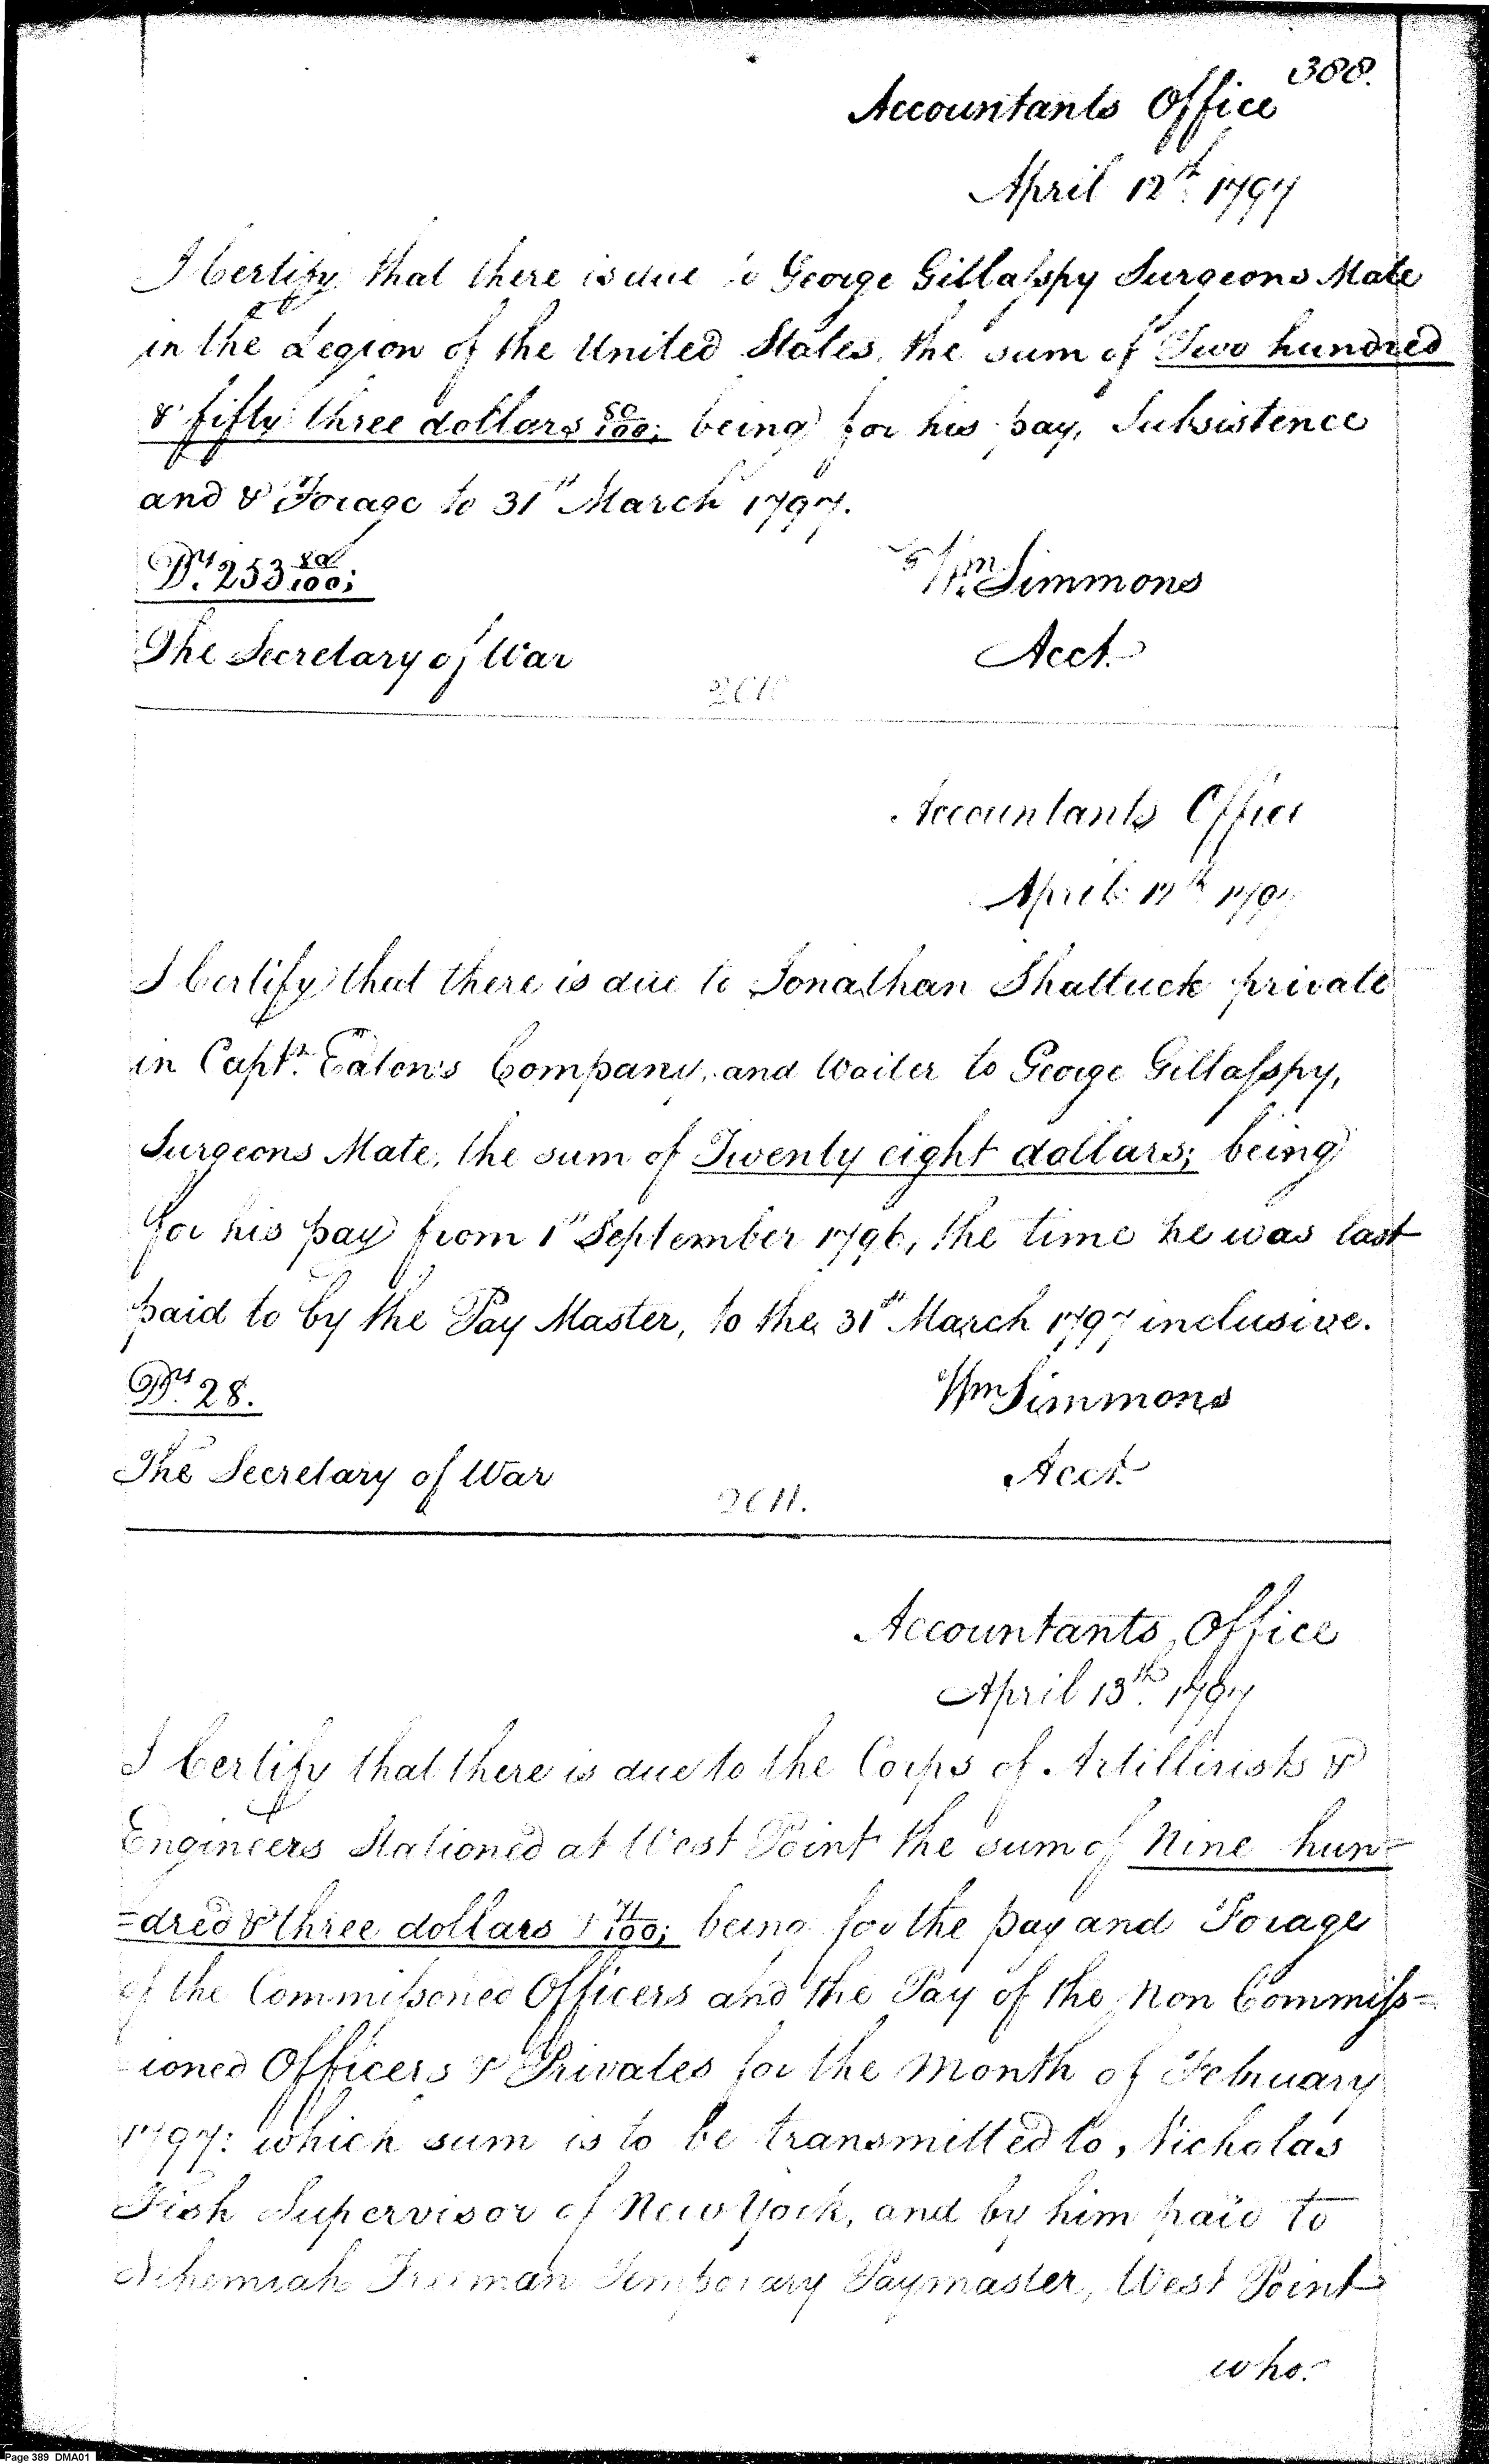 388.
Accountants Office
April 12th. 1797
I Certify that there is due to George Gillasspy Surgeons Mate
in the Legion of the United States, the sum of Two hundred
& fifty three dollars 80/100; being for his pay, Subsistence
and & Forage to 31st March 1797.
Drs. 253 80/100;
Wm. Simmons
The Secretary of War
Acct.
2010
Accountants Office
April 12th 1797
I Certify that there is due to Jonathan Shattuck private
in Captn. Eaton's Company, and Waiter to George Gillasspy,
Surgeons Mate, the sum of Twenty eight dollars; being
for his pay from 1st September 1796, the time he was last
paid to by the Pay Master, to the 31st March 1797 inclusive.
Drs. 28.
Wm Simmons
The Secretary of War
Acct.
2011.
Accountants Office
April 13th. 1797
I Certify that there is due to the Corps of Artillirists &
Engineers Stationed at West Point the sum of Nine hun=
=dred & three dollars 71/100; being for the pay and Forage
of the Commissoned Officers and the Pay of the Non Commiss=
ioned Officers & Privates for the month of February
1797: which sum is to be transmitted to, Nicholas
Fish Supervisor of New York, and by him paid to
Nehemiah Freeman Temporary Paymaster, West Point
who.
Page 389 DMA01